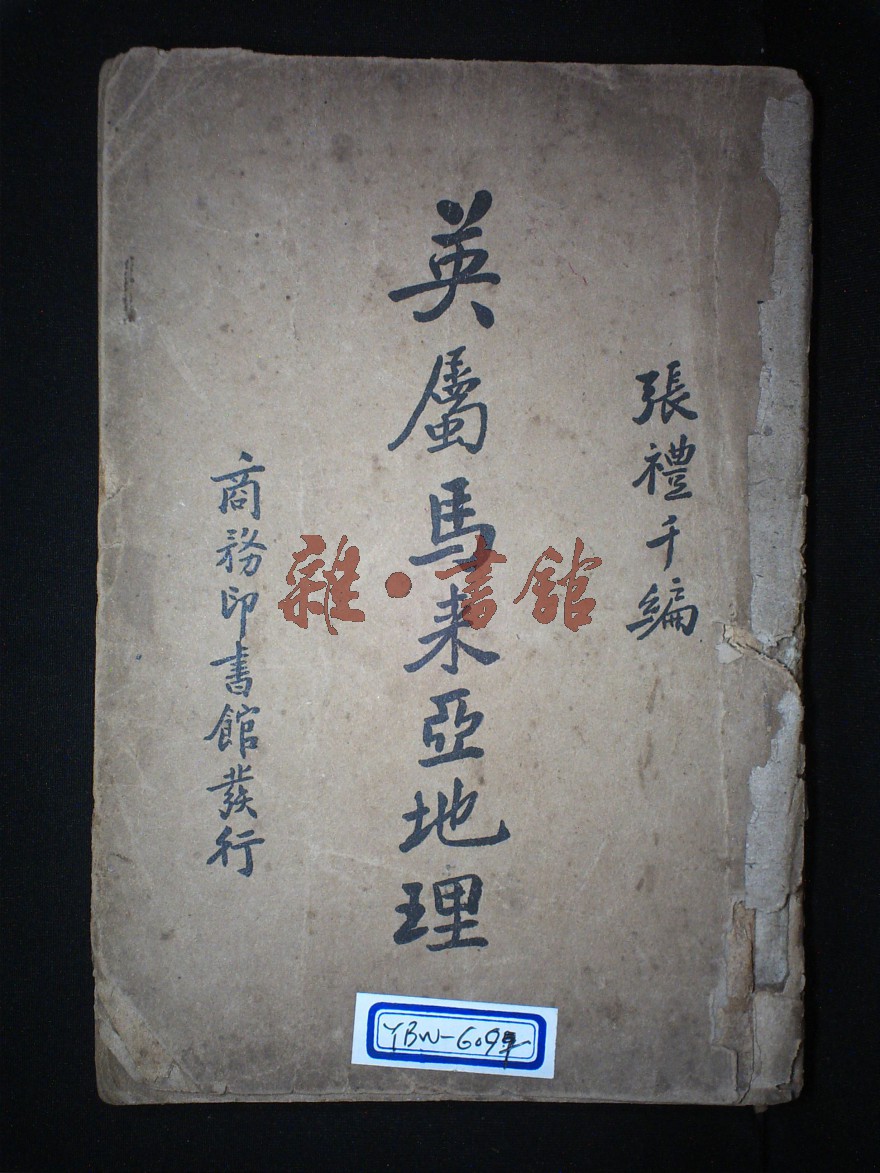 張禮千編
英屬馬来亞地理
商務印書館發行
雜·書館
YBW-609